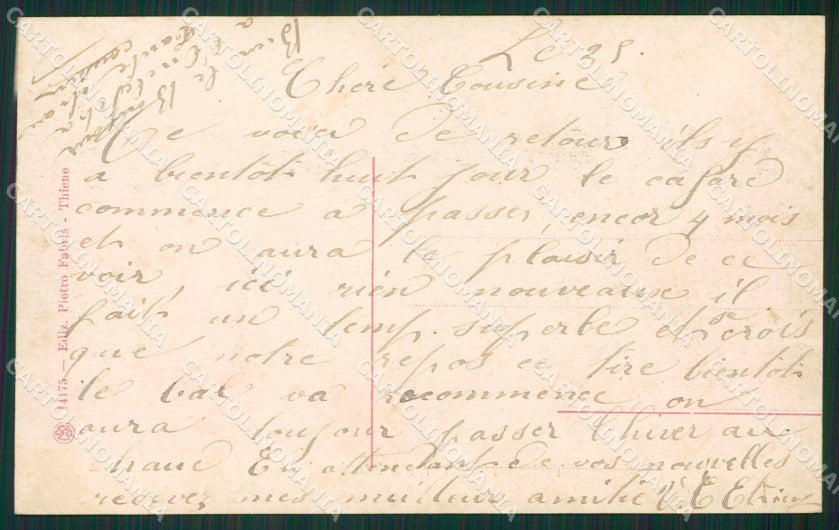 Le 25
Chère Cousine
Me voici de retour ils y
a bientôt huit jour le cafard
commence a passer, encor 4 mois
et on aura le plaisir de ce
voir, ici rien nouveaux il
fait un temp superbe et je crois
que notre repos ce tire bientôt
le bal va recommence on
aura toujour passer lhiver au
chaud En attendant de vos nouvelles
recevez mes meilleur amitié
Bien
a
tante
cousin
le Bonjour
14175 — Ediz. Pietro Fabris - Thiene
CARTOLINOMANIA